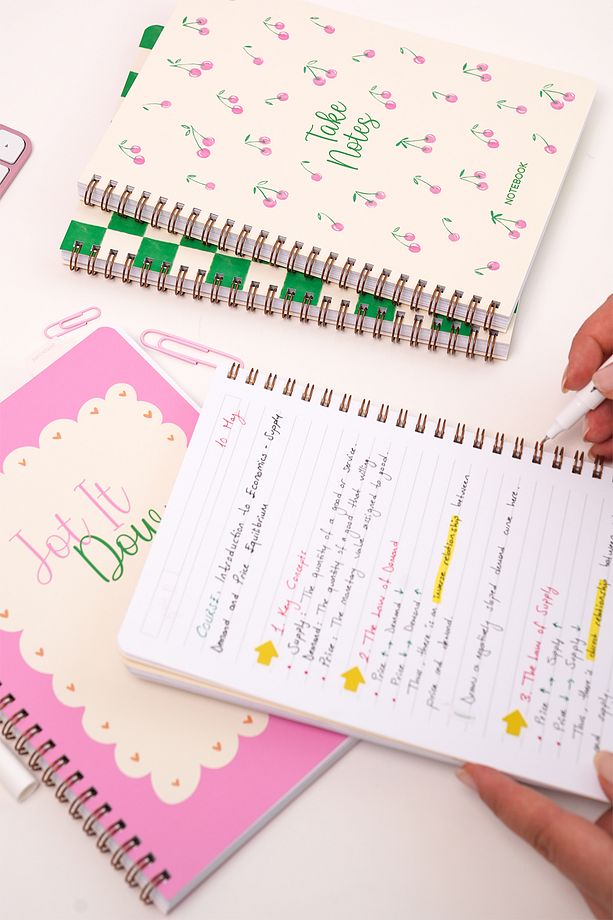 Take
Notes
NOTEBOOK
Jot It
Down
10 May
COURSE: Introduction to Economics - Supply
Demand and Price Equilibrium
1. Key Concepts
• Supply: The quantity of a good or service...
• Demand: The quantity of a good that willing
• Price: The monetary value assigned to good...
2. The Law of Demand
• Price ↑ → Demand ↓
• Price ↓ → Demand ↑
Thus, there is an inverse relationship between
price and demand.
Draw a negatively sloped demand curve here...
3. The Law of Supply
• Price ↑ → Supply ↑
• Price ↓ → Supply ↓
Thus, there is direct relationship between
and supply